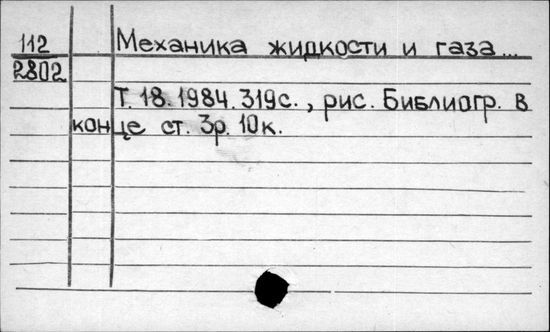 112 Механика жидкости и газа...
2802
Т. 18. 1984. 319с., рис. Библиогр. в
конце ст. 3р. 10к.